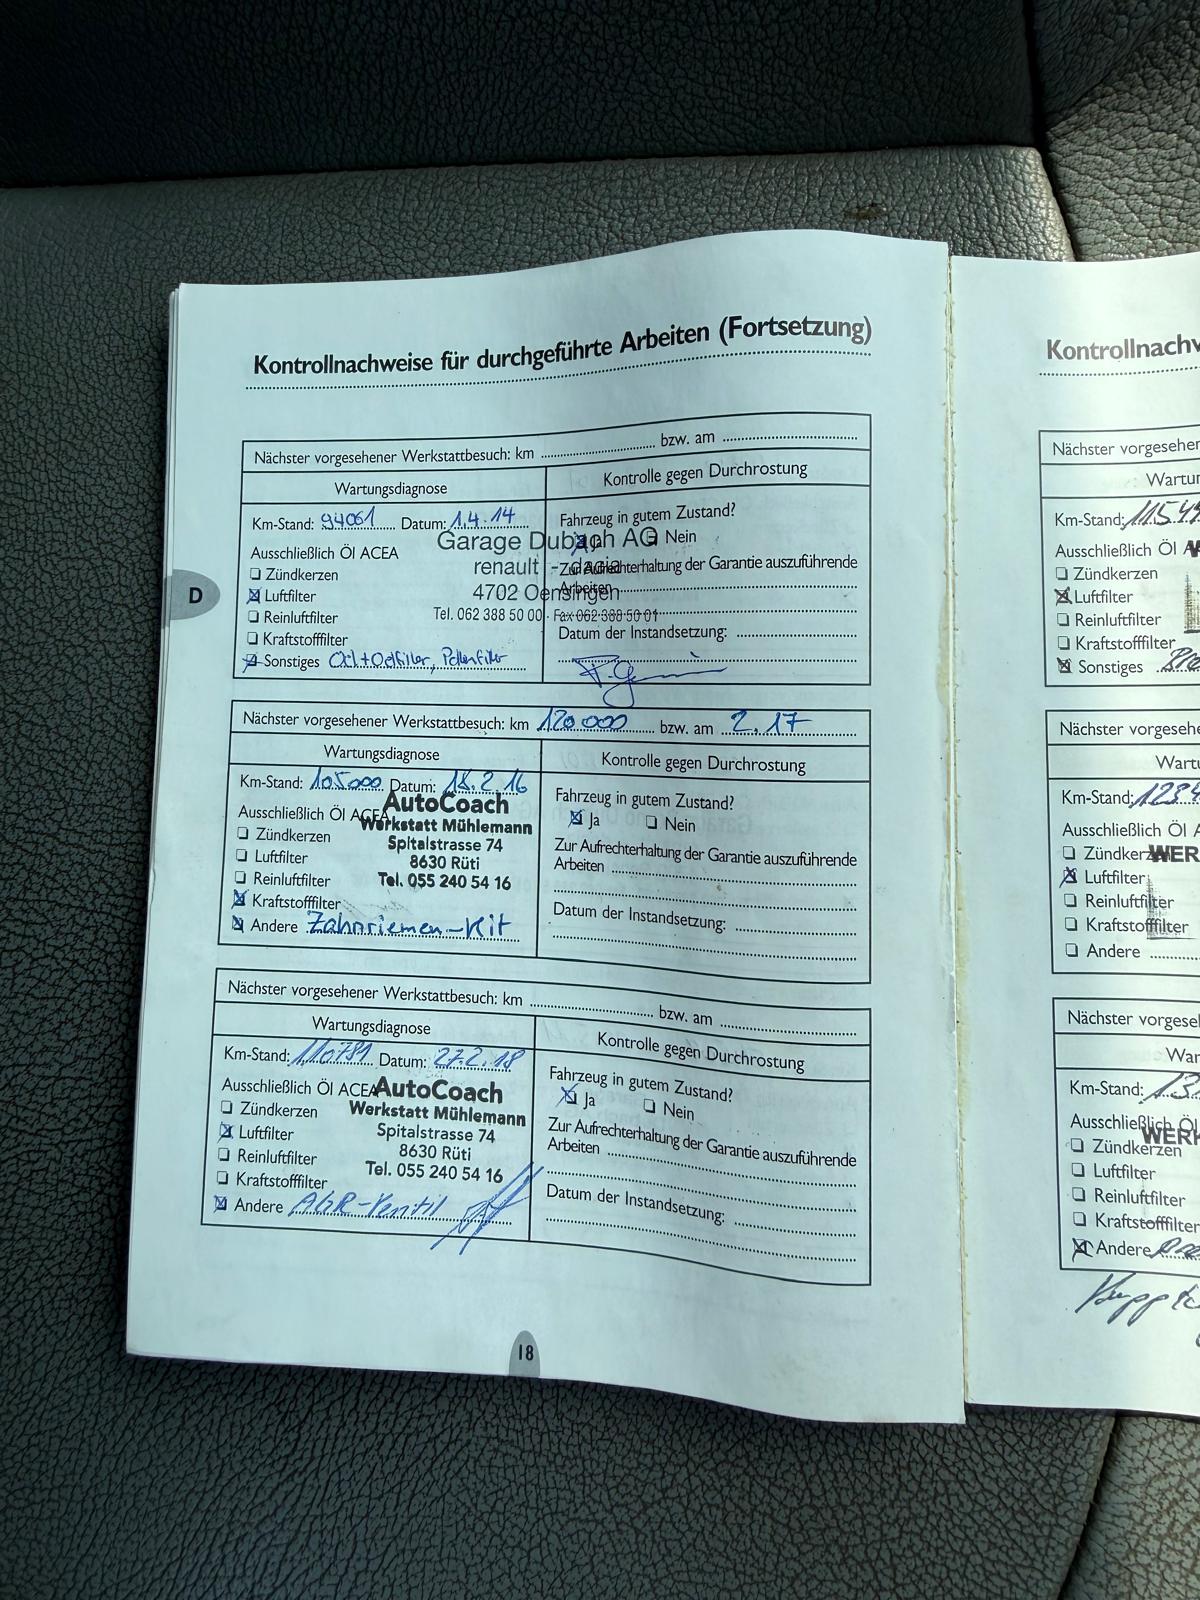 Kontrollnachweise für durchgeführte Arbeiten (Fortsetzung)
Nächster vorgesehener Werkstattbesuch: km bzw. am
Wartungsdiagnose
Kontrolle gegen Durchrostung
Km-Stand: 94061 Datum: 1.4.14
Ausschließlich Öl ACEA
Zündkerzen
Luftfilter
Reinluftfilter
Kraftstofffilter
Sonstiges Oel+Oelfilter, Pollenfilter
Garage Dubach AG
renault - dacia
4702 Oensingen
Tel. 062 388 50 00 - Fax 062 388 50 01
Fahrzeug in gutem Zustand?
Ja Nein
Zur Aufrechterhaltung der Garantie auszuführende
Arbeiten
Datum der Instandsetzung:
D
Nächster vorgesehener Werkstattbesuch: km 120000 bzw. am 2.17
Wartungsdiagnose
Kontrolle gegen Durchrostung
Km-Stand: 105000 Datum: 18.2.16
Ausschließlich Öl ACEA
Zündkerzen
Luftfilter
Reinluftfilter
Kraftstofffilter
Andere Zahnriemen-Kit
AutoCoach
Werkstatt Mühlemann
Spitalstrasse 74
8630 Rüti
Tel. 055 240 54 16
Fahrzeug in gutem Zustand?
Ja Nein
Zur Aufrechterhaltung der Garantie auszuführende
Arbeiten
Datum der Instandsetzung:
Nächster vorgesehener Werkstattbesuch: km bzw. am
Wartungsdiagnose
Kontrolle gegen Durchrostung
Km-Stand: 110781 Datum: 27.2.18
Ausschließlich Öl ACEA
Zündkerzen
Luftfilter
Reinluftfilter
Kraftstofffilter
Andere AGR-Ventil
AutoCoach
Werkstatt Mühlemann
Spitalstrasse 74
8630 Rüti
Tel. 055 240 54 16
Fahrzeug in gutem Zustand?
Ja Nein
Zur Aufrechterhaltung der Garantie auszuführende
Arbeiten
Datum der Instandsetzung:
18
Kontrollnachw
Nächster vorgesehene
Wartun
Km-Stand: 11549
Ausschließlich Öl A
Zündkerzen
Luftfilter
Reinluftfilter
Kraftstofffilter
Sonstiges
Nächster vorgesehe
Wartu
Km-Stand: 1234
Ausschließlich Öl A
Zündkerz
WER
Luftfilter
Reinluftfilter
Kraftstofffilter
Andere
Nächster vorgesel
War
Km-Stand:
Ausschließlich Öl
WERK
Zündkerzen
Luftfilter
Reinluftfilter
Kraftstofffilter
Andere